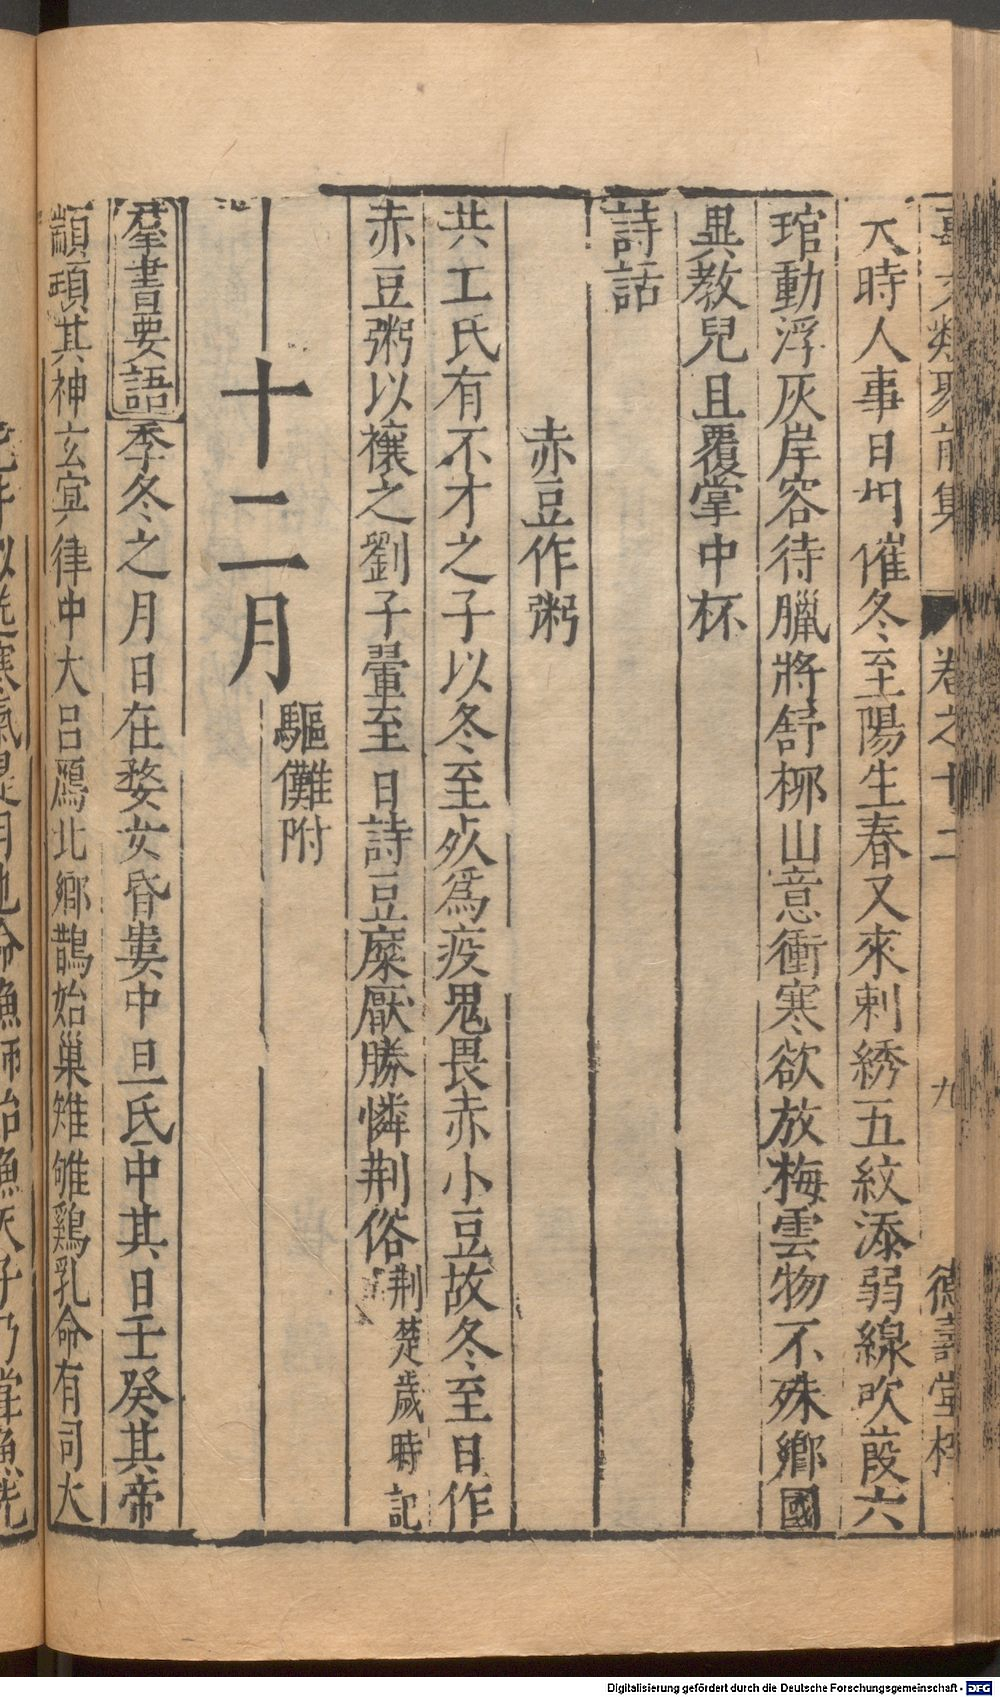 事文類聚前集 卷之十二 九 德壽堂梓
天時人事日相催冬至陽生春又來刺綉五紋添弱線吹葭六
琯動浮灰岸容待臘將舒柳山意衝寒欲放梅雲物不殊鄉國
異教兒且覆掌中杯
詩話
赤豆作粥
共工氏有不才之子以冬至死為疫鬼畏赤小豆故冬至日作
赤豆粥以禳之劉子翬至日詩豆糜厭勝憐荆俗荆楚歲時記
十二月 驅儺附
羣書要語季冬之月日在婺女昏婁中旦氐中其日壬癸其帝
顓頊其神玄冥律中大呂鴈北鄉鵲始巢雉雊鷄乳命有司大
寒氣是月也命漁師始漁天子乃嘗魚先
Digitalisierung gefördert durch die Deutsche Forschungsgemeinschaft - DFG